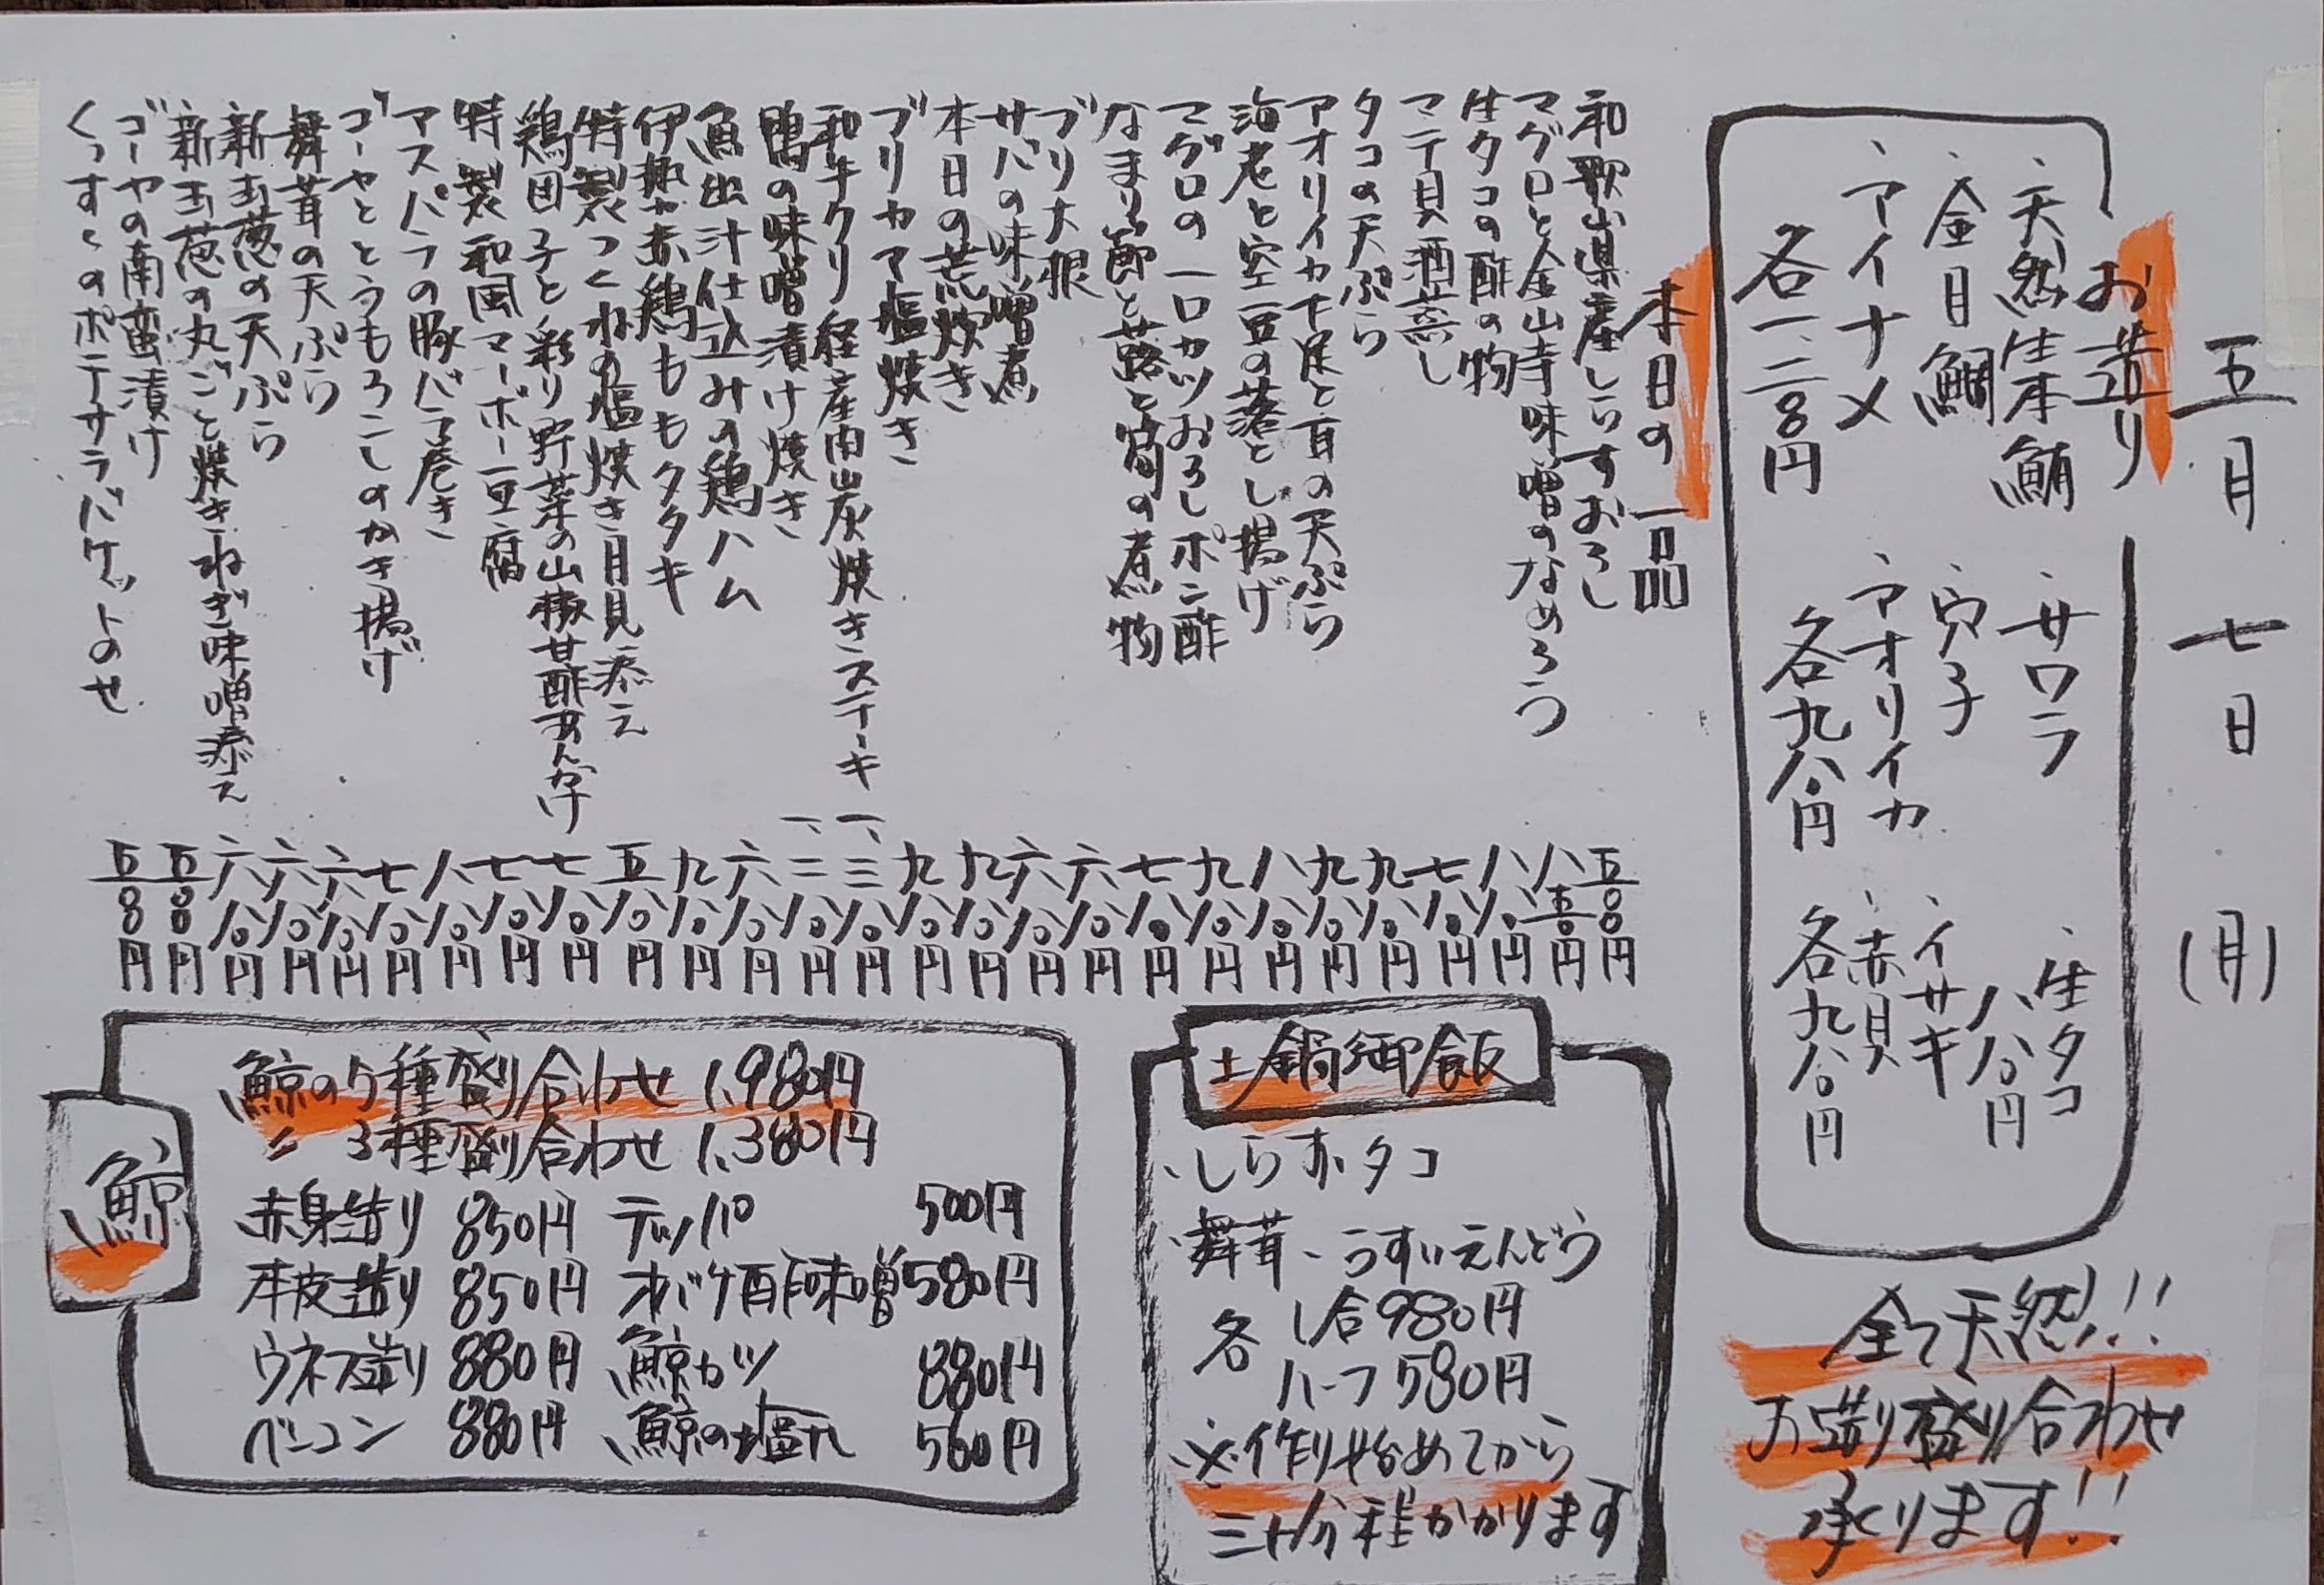 五月七日(月)
お造り
、天然生本鮪
、金目鯛
、アイナメ
各一、二八〇円
、サワラ
、穴子
、アオリイカ
各九八〇円
、生タコ
八八〇円
、イサキ
、赤貝
各九八〇円
全て天然!!
お造り盛り合わせ
承ります!!
本日の一品
和歌山県産しらすおろし 五〇〇円
マグロと金山寺味噌のなめろう 八五〇円
生タコの酢の物 八八〇円
マテ貝酒蒸し 七八〇円
タコの天ぷら 九八〇円
アオリイカ下足と耳の天ぷら 九八〇円
海老と空豆の落とし揚げ 八八〇円
マグロの一口カツおろしポン酢 九八〇円
なまり節と蕗と筍の煮物 七八〇円
ブリ大根 六八〇円
サバの味噌煮 六八〇円
本日の荒炊き 九八〇円
ブリカマ塩焼き 九八〇円
和牛クリ 経産肉炭焼きステーキ 一、三八〇円
鴨の味噌漬け焼き 一、二八〇円
魚出汁仕込みの鶏ハム 六八〇円
伊勢赤鶏ももタタキ 九八〇円
特製つくねの塩焼き月見添え 五八〇円
鶏団子と彩り野菜の山椒甘酢あんかけ 七八〇円
特製和風マーボー豆腐 七八〇円
アスパラの豚バラ巻き 八八〇円
ゴーヤととうもろこしのかき揚げ 七八〇円
舞茸の天ぷら 六八〇円
新玉葱の天ぷら 六八〇円
新玉葱の丸ごと焼きねぎ味噌添え 六八〇円
ゴーヤの南蛮漬け 五〇〇円
くっすくのポテサラバケットのせ 五〇〇円
土鍋御飯
、しらす、タコ
、舞茸、うすいえんどう
各 1合980円
ハーフ580円
※作り始めてから
三十分程かかります
鯨
鯨の5種盛り合わせ 1,980円
〃 3種盛り合わせ 1,380円
赤身造り 850円 テッパ 500円
本皮造り 850円 オバケ酢味噌 580円
ウネス造り 880円 鯨カツ 880円
ベーコン 880円 鯨の塩タレ 560円